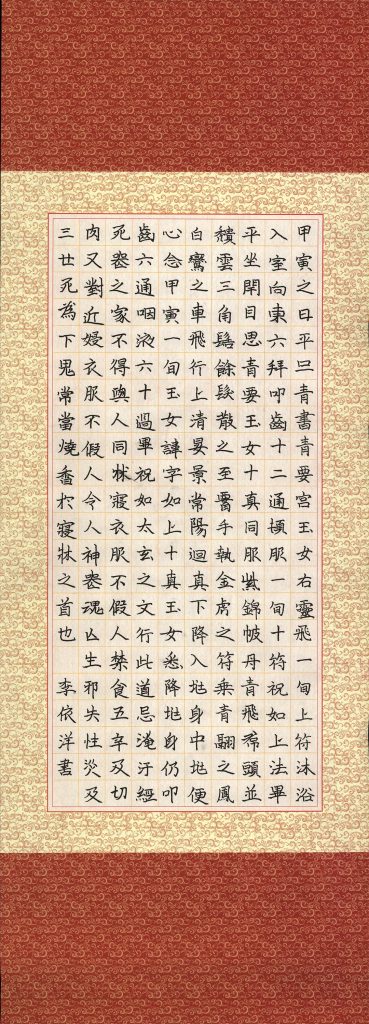 甲寅之日平旦青書青要宮玉女右靈飛一旬上符沐浴
入室向東六拜叩齒十二通頓服一旬十符祝如上法畢
平坐閉目思青要玉女十真同服紫錦帔丹青飛帬頭並
頹雲三角髻餘髮散之至要手執金虎之符乘青翮之鳳
白鸞之車飛行上清晏景常陽迴真下降入地身中地便
心念甲寅一旬玉女諱字如上十真玉女悉降地身仍叩
齒六通咽液六十過畢祝如太玄之文行此道忌淹汙經
死喪之家不得與人同牀寢衣服不假人禁食五辛及切
肉又對近婦衣服不假人令人神喪魂亡生邪失性災及
三世死為下鬼常當燒香於寢牀之首也 李依洋書